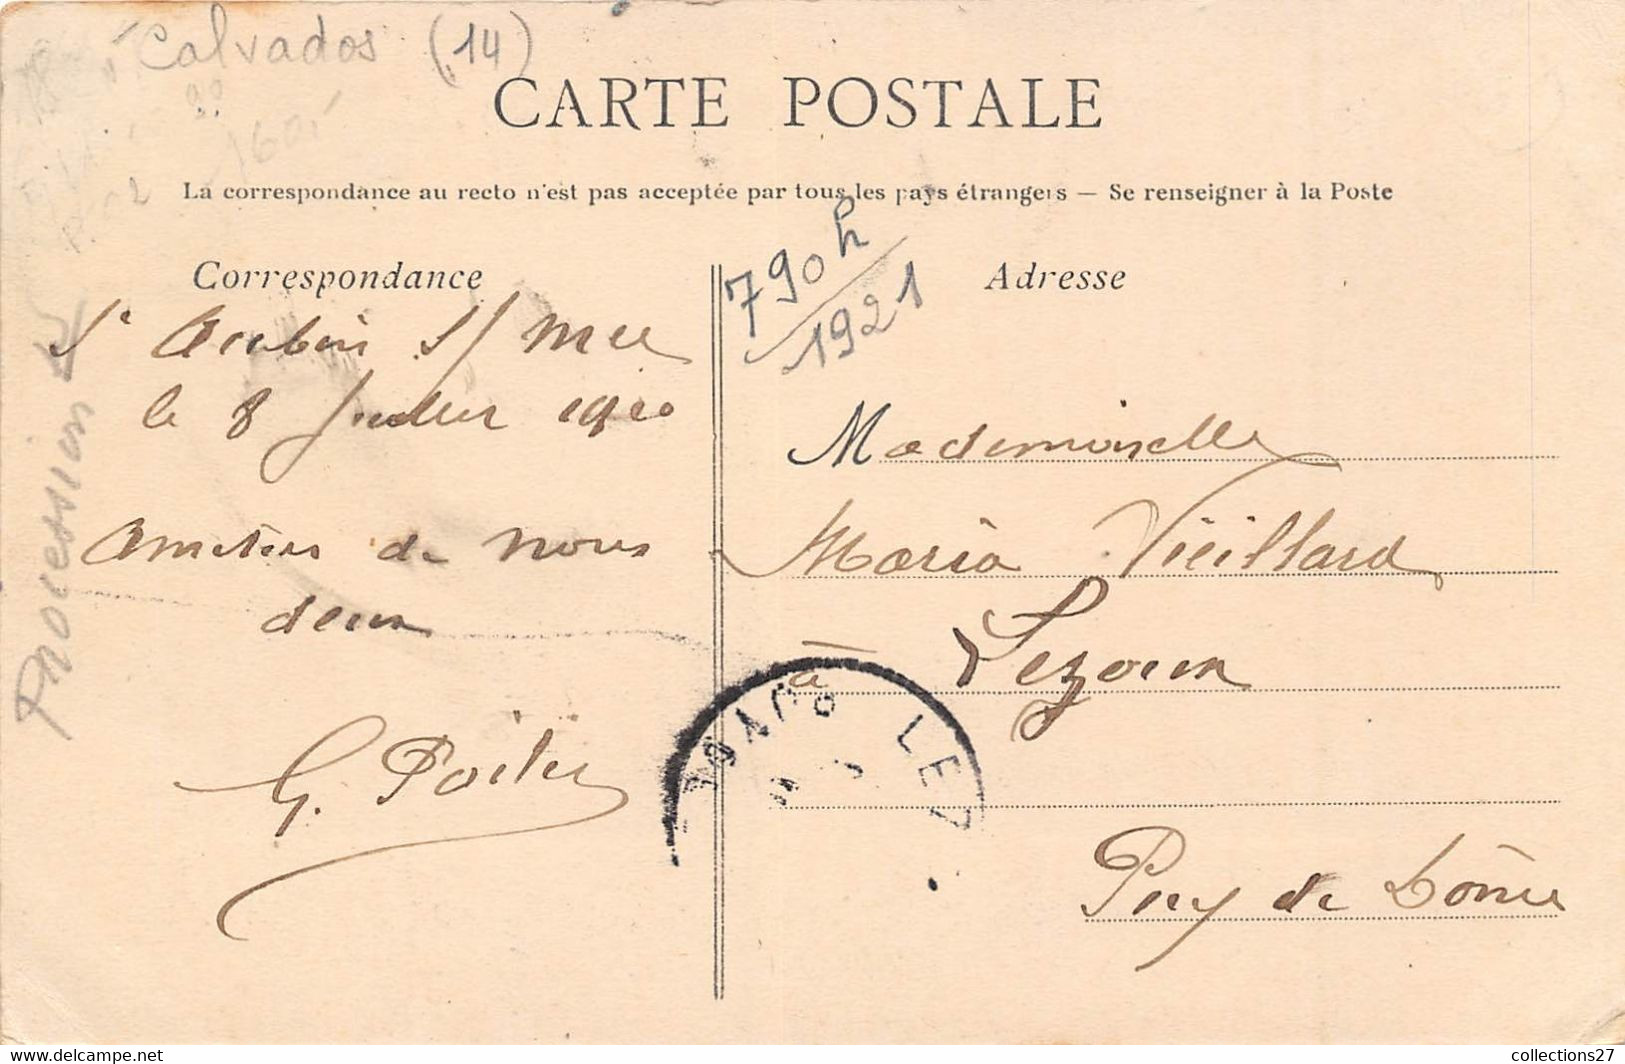 Calvados (14)
160.-
CARTE POSTALE
La correspondance au recto n'est pas acceptée par tous les pays étrangers — Se renseigner à la Poste
Processions
Correspondance
St Aubin s/ Mer
le 8 Juillet 1910
Amitiés de nous
deux
G. Poitier
790h
1921
Adresse
Mademoiselle
Maria Vieillard
à Lezoux
Puy de Dôme
LEZ
collections27